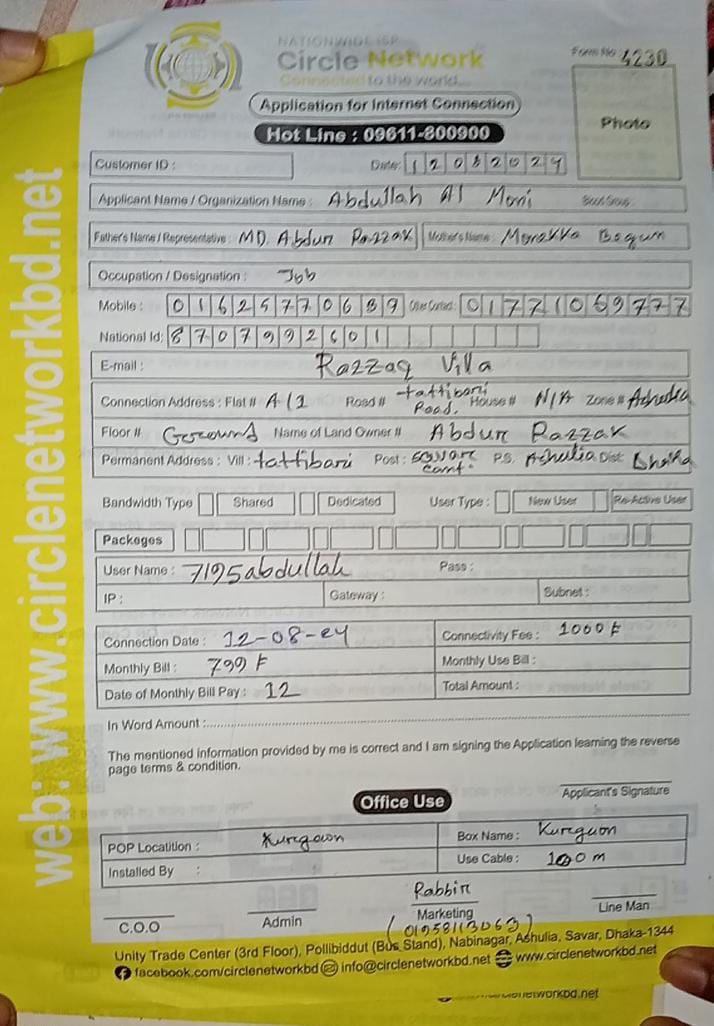 NATIONWIDE ISP
Circle Network
Connected to the world...
Form No 4230
Application for Internet Connection
Hot Line : 09611-800900
Photo
Customer ID :
Date: 12082024
Applicant Name / Organization Name : Abdullah Al Moni
Father's Name / Representative : MD. Abdur Razzak Mother's Name : Begum
Occupation / Designation : Job
Mobile : 01625770689 Other Contact : 01771069777
National Id: 8707992601
E-mail : Razzaq Villa
Connection Address : Flat # A/1 Road # tattibari Road. House # N/A Zone # Ashulia
Floor # Ground Name of Land Owner # Abdur Razzak
Permanent Address : Vill : tattibari Post : cant. P.S. Ashulia Dist: Dhaka
Bandwidth Type Shared Dedicated User Type : New User Re-Active User
Packages
User Name : 7195abdullah Pass :
IP : Gateway : Subnet :
Connection Date : 12-08-24 Connectivity Fee : 1000 ৳
Monthly Bill : 799 ৳ Monthly Use Bill :
Date of Monthly Bill Pay : 12 Total Amount :
In Word Amount :
The mentioned information provided by me is correct and I am signing the Application learning the reverse
page terms & condition.
Applicant's Signature
Office Use
POP Locatition : Kurgaon Box Name : Kurgaon
Installed By : Use Cable : 100 m
Rabbir
C.O.O Admin Marketing Line Man
(01958113063)
Unity Trade Center (3rd Floor), Pollibiddut (Bus Stand), Nabinagar, Ashulia, Savar, Dhaka-1344
facebook.com/circlenetworkbd info@circlenetworkbd.net www.circlenetworkbd.net
web: www.circlenetworkbd.net